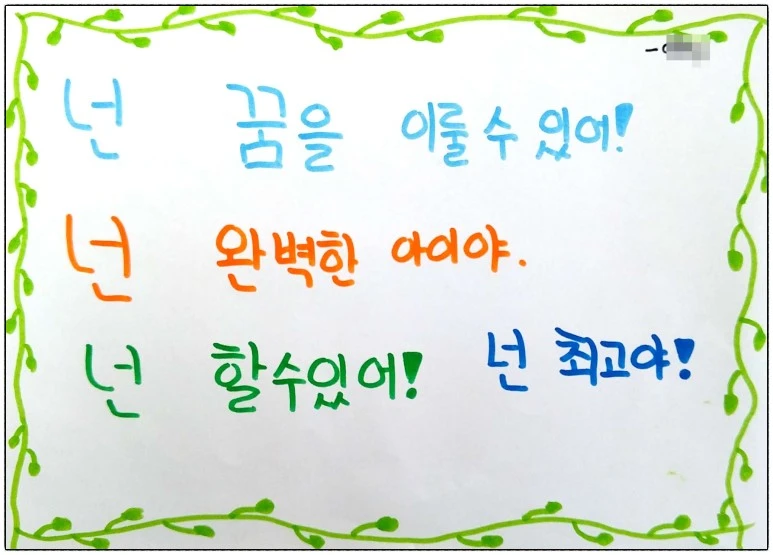 넌 꿈을 이룰 수 있어!
넌 완벽한 아이야.
넌 할수있어! 넌 최고야!